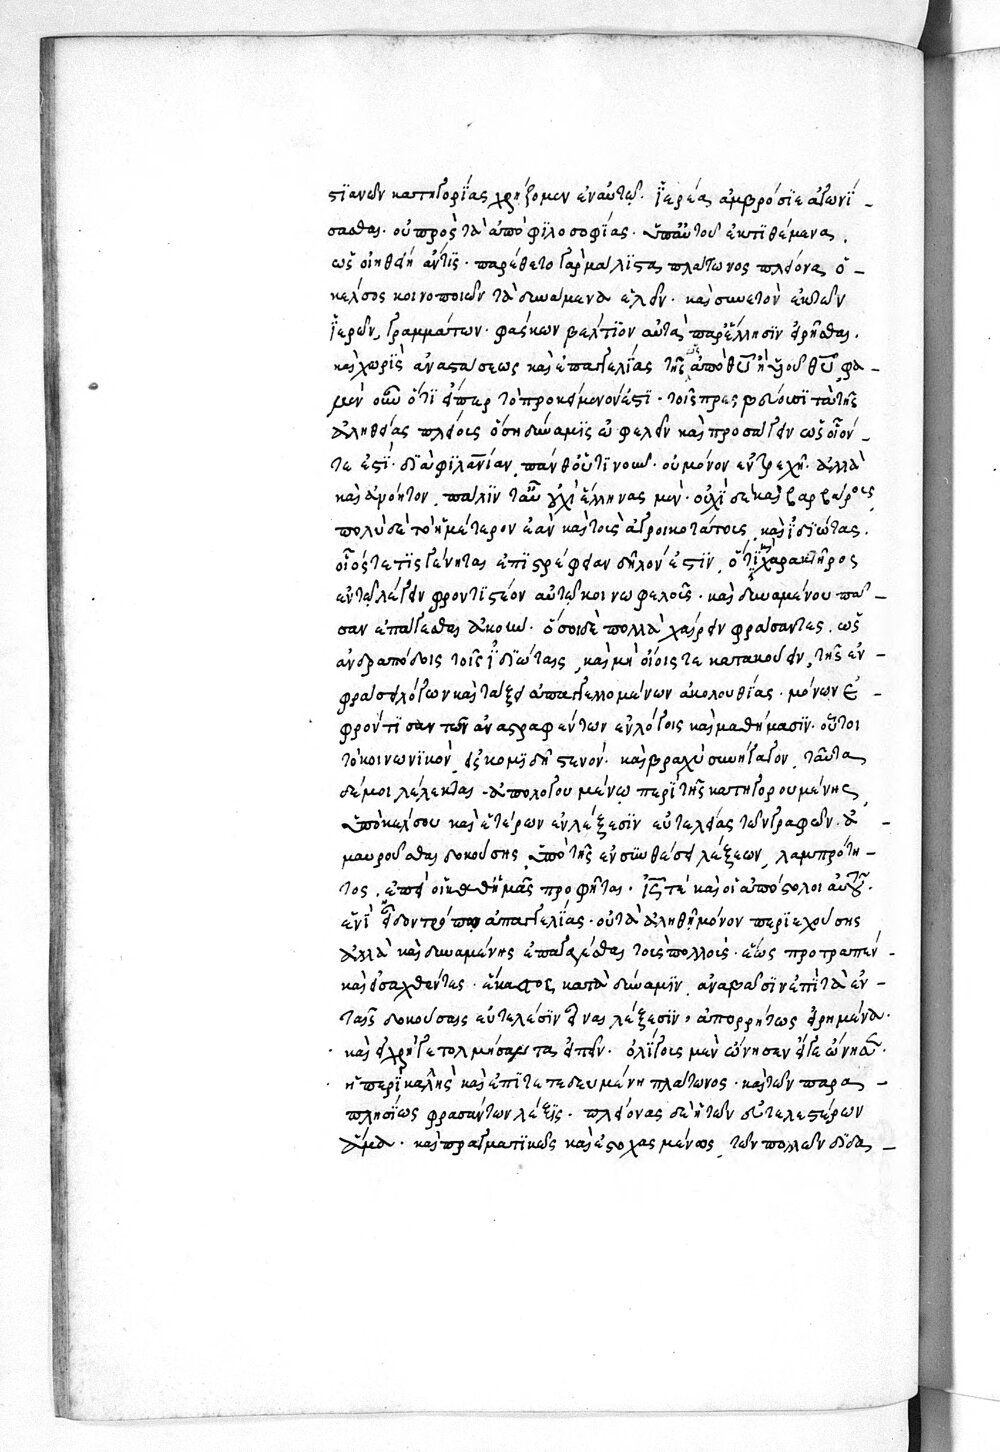 στϊανῶν κατηγορίας χρήζομεν ἐναὐτῶ· ἱ̈ερέα ἀμβρόσϊε ἀγωνί –
σασθαι· οὐ πρὸς τὰ ἀπὸ φϊλοσοφίας· ὑπ' αὐτοῦ ἐκτϊθέμενα,
ὡς οἰηθείη ἄντϊς· παρέθετο γὰρ μάλϊστα πλάτωνος πλείονα ὁ –
κέλσος κοινοποιῶν τὰ δυνάμενα ἑλεῖν· καὶ συνετὸν ἐκτῶν
ἱ̈ερῶν γραμμάτων· φάσκων βέλτϊον αὐτὰ παρ' ἕλλησϊν εἰρῆσθαι.
καὶ χωρὶς ἀνατάσεως καὶ ἐπαγγελίας τῆς ὡς ἀπὸ θυ ἢ υἱοῦ θυ φα –
μὲν οὖν ὅτϊ εἴπερ τὸ προκείμενον ἐστϊ· τοῖς πρεσβεύουσϊ τὰ τῆς
ἀληθείας πλείους ὅση δύναμϊς ὠφελεῖν καὶ προσάγειν ὡς οἷόν –
τε ἐστϊ· δϊὰ φϊλανϊαν πανθ' ὁντϊνοῦν· οὐ μόνον ἐντρεχῆ· ἀλλὰ
καὶ ἀνόητον, πάλϊν τ' αὖ οὐχὶ ἕλληνας μὲν· οὐχὶ δὲ καὶ βαρβάρους
πολὺ δὲ τὸ ἥμερον ἐὰν καὶ τοὺς ἀγροικοτάτους, καὶ ἰ̈δϊώτας.
οἷός τε τὶς γένηται ἐπϊστρέφειν δῆλον ἐστϊν, ὅτϊ χαρακτῆρος
ἐν τῶ λέγειν φροντϊστέον αὐτῶ κοινωφελοῦς· καὶ δυναμένου πᾶ –
σαν ἐπάγεσθαι ἀκοήν· ὅσοι δὲ πολλὰ χαίρειν φράσαντες, ὡς
ἀνδραπόδοις τοῖς ἰ̈δϊώταις, καὶ μὴ οἵοις τε κατακούειν, τῆς ἐν –
φράσει λόγων καὶ τάξει ἀπαγγελλομένων ἀκολουθίας· μόνων ἐ –
φρόντϊσαν τῶν ἀναστραφέντων ἐν λόγοις καὶ μαθήμασϊν· οὗτοι
τὸ κοινωνϊκὸν, εἰς κομϊδῆ στενόν· καὶ βραχὺ συνήγαγον, ταῦτα
δέ μοι λέλεκται ἀπολογουμένω περὶ τῆς κατηγορουμένης
ὑπὸ κέλσου καὶ ἑτέρων ἐν λέξεσϊν εὐτελείας τῶν γραφῶν· ἀ –
μαυροῦσθαι δοκούσης ὑπὸ τῆς ἐν συνθέσει λέξεων, λαμπρότη –
τος, ἐπεὶ οἱ καθ' ἡμᾶς προφῆται· ις τὲ καὶ οἱ ἀπόστολοι αὐτοῦ.
ἐνεῖδον τρόπω ἀπαγγελίας· οὐ τὰ ἀληθῆ μόνον περϊεχούσης
ἀλλὰ καὶ δυναμένης ἐπάγεσθαι τοὺς πολλούς· ἕως προτραπέν –
καὶ εἰσαχθέντες· ἕκαστος κατὰ δύναμϊν ἀναβῶσϊν ἐπὶ τὰ ἐν –
ταῖς δοκούσαις εὐτελέσϊν εἶναι λέξεσϊν, ἀπορρήτως εἰρημένα.
καὶ εἰ χρή γε τολμήσαντα εἰπεῖν· ὀλίγους μὲν ὤνησεν εἴγε ὤνησεν.
ἡ περϊκαλλὴς καὶ ἐπϊτετηδευμένη πλάτωνος· καὶ τῶν παρα –
πλησίως φρασάντων λέξϊς· πλείονας δὲ ἡ τῶν εὐτελεστέρων
ἅμα· καὶ πραγματϊκῶς καὶ ἐστοχασμένως, τῶν πολλῶν δϊδα –